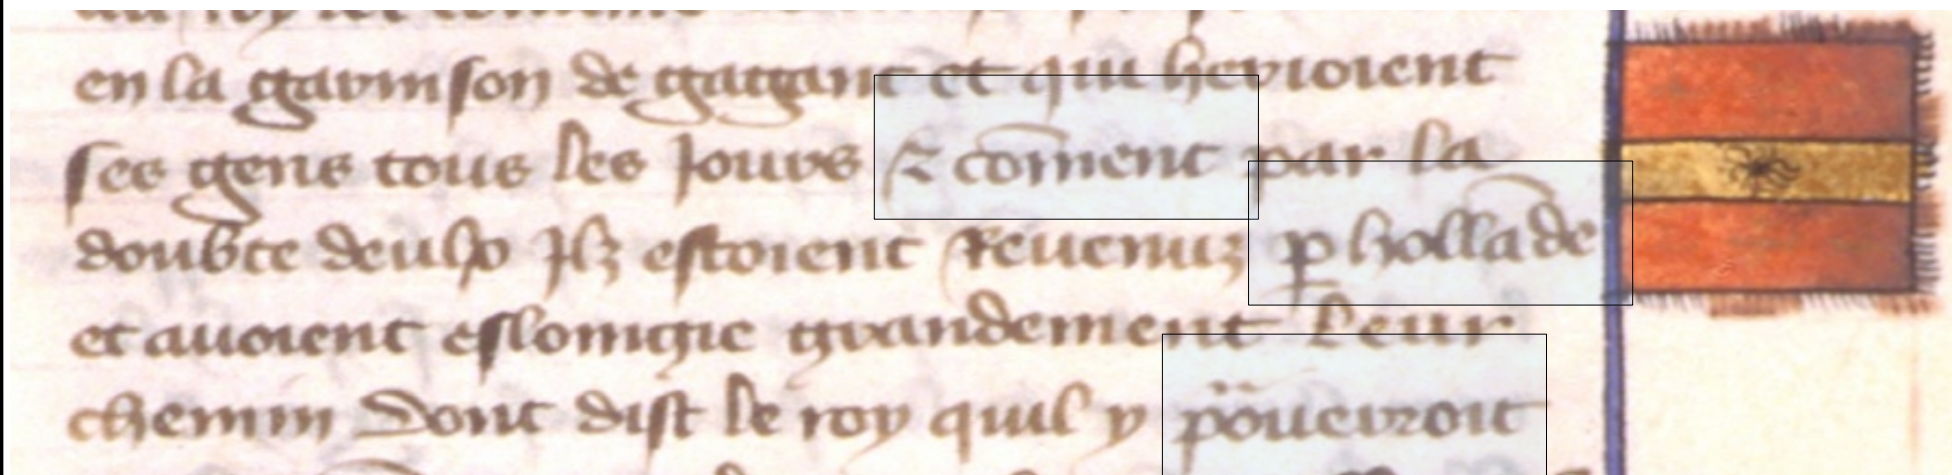 en la garnison de gagant et qui herioient
ses gens tous les Jours ⁊ com̄ent par la
doubte deulx Ilz estoient Reuenuz ꝑ hollāde
et auoient eslongie grandement leur
chemin Dont dist le roy quil y po̎ueuroit